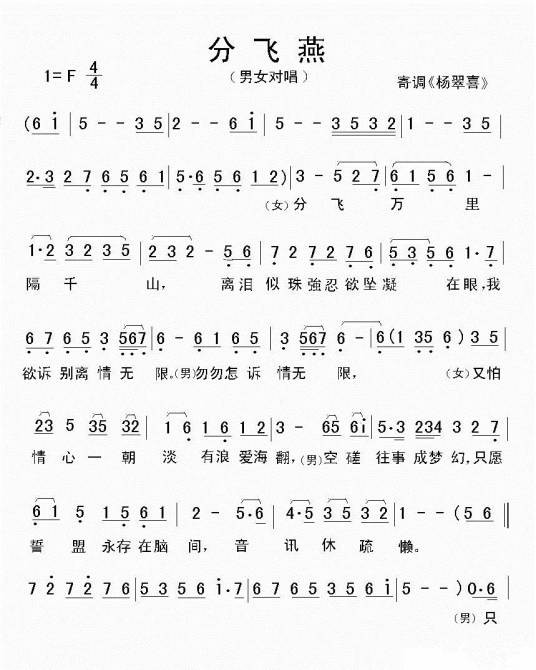 分飞燕
1=F 4/4
（男女对唱）
寄调《杨翠喜》
(6 i | 5 - - 3 5 | 2 - - 6 i | 5 - - 3 5 3 2 | 1 - - 3 5 |
2·3 2 7 6 5 6 1 | 5·6 5 6 1 2) | 3 - 5 2 7 | 6 1 5 6 1 - |
(女)分 飞 万 里
1·2 3 2 3 5 | 2 3 2 - 5 6 | 7 2 7 2 7 6 | 5 3 5 6 1·7 |
隔 千 山， 离泪 似珠強忍欲坠凝 在眼,我
6 7 6 5 3 567 | 6 - 6 1 6 5 | 3 567 6 - | 6 (1 35 6) 3 5 |
欲诉别离情无 限。(男)勿勿怎 诉 情无 限， (女)又怕
23 5 35 32 | 1 6 1 6 1 2 | 3 - 65 6i | 5·3 234 3 2 7 |
情 心 一 朝 淡 有浪 爱海 翻，(男)空磋 往事 成梦 幻,只愿
6 1 5 1 5 6 1 | 2 - 5·6 | 4·5 3 5 3 2 | 1 - - (5 6 ||
誓 盟 永存在脑 间， 音 讯 休 疏 懒。
7 2 7 2 7 6 | 5 3 5 6 1· 7 | 6 7 6 5 3 5 6 1 | 5 - - ) 0·6 |
(男) 只